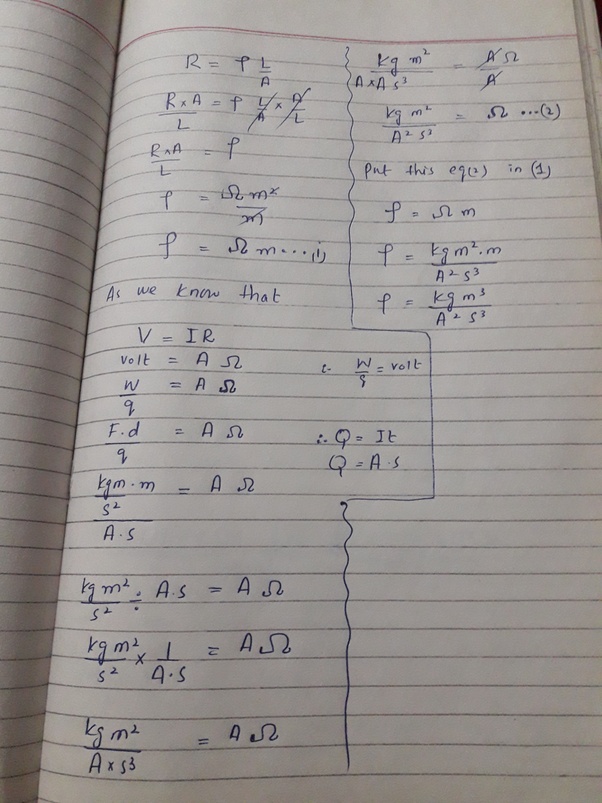 R = ρ L/A
R×A/L = ρ L/A × A/L
R×A/L = ρ
ρ = Ω m²/m
ρ = Ω m ... (i)
As we know that
V = IR
volt = A Ω
W/q = A Ω ∵ W/q = volt
F.d/q = A Ω ∴ Q = It
Q = A·s
(kgm·m/s²)/(A·s) = A Ω
kg m²/s² ÷ A·s = A Ω
kg m²/s² × 1/A·s = A Ω
kg m²/A×s³ = A Ω
kg m²/A×A s³ = A Ω/A
kg m²/A² s³ = Ω ...(2)
Put this eq(2) in (1)
ρ = Ω m
ρ = kg m²·m/A² s³
ρ = kg m³/A² s³